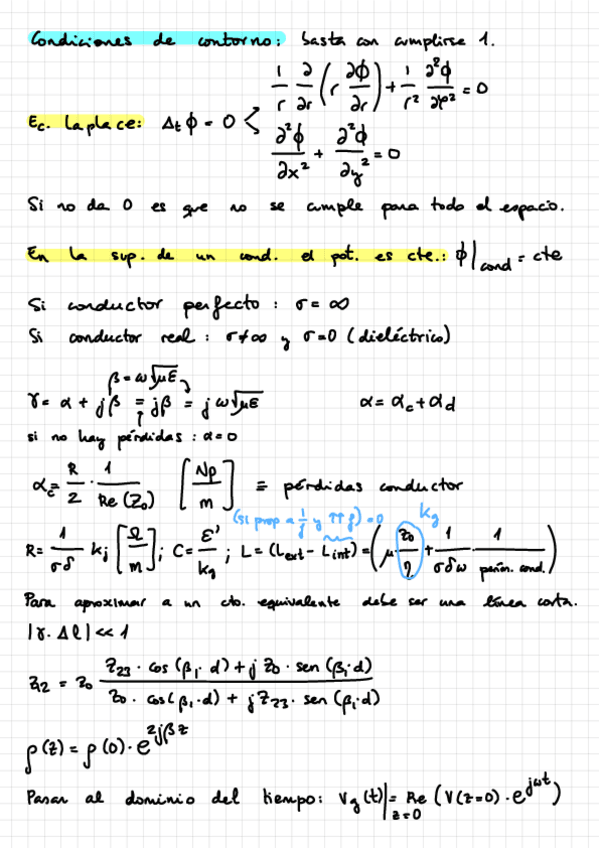 Condiciones de contorno: basta con cumplirse 1.
Ec. Laplace: Δₜϕ = 0 < 1/r ∂/∂r (r ∂ϕ/∂r) + 1/r² ∂²ϕ/∂φ² = 0
∂²ϕ/∂x² + ∂²ϕ/∂y² = 0
Si no da 0 es que no se cumple para todo el espacio.
En la sup. de un cond. el pot. es cte.: ϕ|cond = cte
Si conductor perfecto : σ = ∞
Si conductor real : σ ≠ ∞ y σ = 0 (dieléctrico)
β = ω√με
γ = α + jβ = jβ = jω√με α = αc + αd
si no hay pérdidas : α = 0
αc = R/2 · 1/Re(Z₀) [Np/m] ≡ pérdidas conductor
(si prop a 1/f y ↑↑ f) = 0 kg
R = 1/σδ kj [Ω/m]; C = ε'/kg ; L = (Lext - Lint) = (μ z₀/η + 1/σδω · 1/perím. cond.)
Para aproximar a un cto. equivalente debe ser una línea corta.
|γ · Δl| << 1
Z₁₂ = Z₀ Z₂₃ · cos (β₁ · d) + j Z₀ · sen (β₁ · d) / Z₀ · cos (β₁ · d) + j Z₂₃ · sen (β₁ · d)
ρ(z) = ρ(0) · e^2jβz
Pasar al dominio del tiempo: Vg(t)|z=0 = Re (V(z=0) · e^jωt)